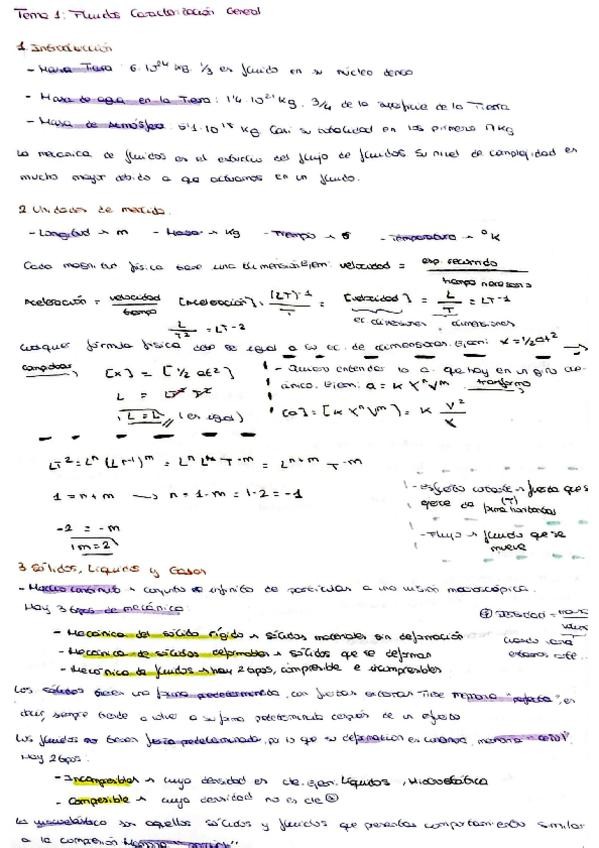 Tema 1: Fluidos Caracterización General
1. Introducción
- Masa Tierra: 6·10²⁴ kg. 1/3 es fluido en su núcleo denso
- Masa de agua en la Tierra: 1'4·10²¹ kg, 3/4 de la superficie de la Tierra
- Masa de atmósfera: 5'1·10¹⁸ kg Casi su totalidad en los primeros 17kg
La mecánica de fluidos es el estudio del flujo de fluidos. Su nivel de complejidad es
mucho mayor debido a que actuamos en un fluido.
2. Unidades de medida.
- Longitud → m - Masa → Kg - Tiempo → s - Temperatura → °K
Cada magnitud física tiene una dimensión. Ejem: velocidad = esp. recorrido / tiempo necesario
Aceleración = velocidad / tiempo [Aceleración] = (LT)-1 / T [velocidad] = L / T = LT-1
L / T² = LT-2 ec dimensiones dimensiones
Cualquier fórmula física debe ser igual a su ec. de dimensiones. Ejem: x = 1/2 at² →
comprobar [x] = [1/2 at²] - Quiero entender la a. que hay en un giro
L = LT² T² Ejem: a = K Xⁿ Vᵐ transformo
L = L (es igual) [a] = [K Xⁿ Vᵐ] = K V² / X
LT² = Lⁿ (LT-1)ᵐ = Lⁿ Lᵐ T-m = Lⁿ⁺ᵐ T-m
1 = n + m → n = 1-m = 1-2 = -1
-2 = -m
m = 2
- Esfuerzo cortante → fuerza que se
ejerce de (T) forma horizontal
- Flujo → fluido que se
mueve
3. Sólidos, Líquidos y Gases
- Medio continuo → conjunto infinito de partículas a una visión macroscópica.
Hay 3 tipos de mecánica:
- Mecánica del sólido rígido → sólidos materiales sin deformación
- Mecánica de sólidos deformables → sólidos que se deforman
- Mecánica de fluidos → hay 2 tipos, compresible e incompresibles
Densidad = masa / volum
Los sólidos tienen una forma predeterminada, con fuerzas externas. Tiene memoria "perfecta", es
decir, siempre tiende a volver a su forma predeterminada después de un esfuerzo
Los fluidos no tienen forma predeterminada, por lo que su deformación es continua, memoria "cero".
Hay 2 tipos:
- Incompresibles → cuya densidad es cte. Ejem: Líquidos, Hidrostática
- Compresible → cuya densidad no es cte
La viscoelástico son aquellos sólidos y fluidos que presentan comportamiento similar
a la compresión